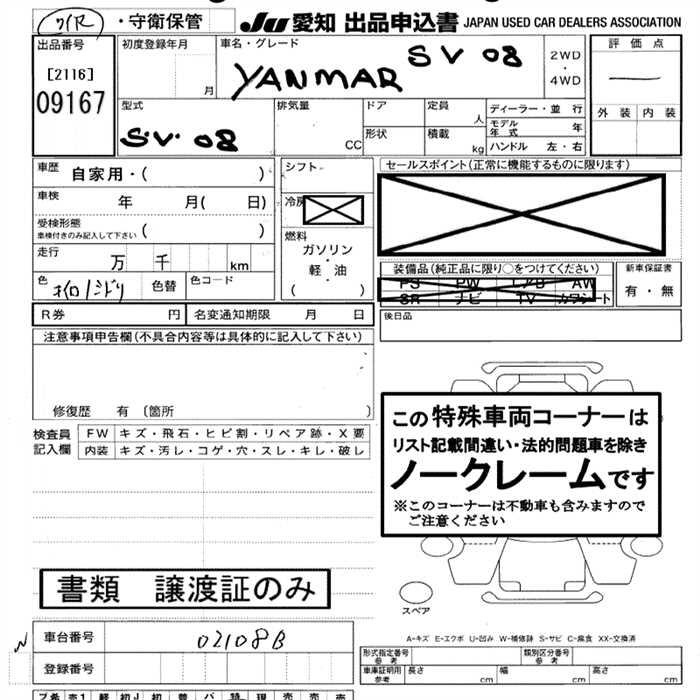 ・守衛保管 JU 愛知 出品申込書 JAPAN USED CAR DEALERS ASSOCIATION
出品番号 初度登録年月 車名・グレード 2WD ・ 4WD 評価点
[2116] 月 YANMAR SV 08
09167 外装 内装
型式 排気量 ドア 定員 人 ディーラー・並 行
SV. 08 CC 形状 積載 kg モデル年式 年
ハンドル 左・右
車歴 自家用・( ) シフト セールスポイント(正常に機能するものに限ります)
車検 年 月( 日) 冷房
受検形態 車検付きのみ記入して下さい ( ) 燃料
走行 万 千 km ガソリン ・ 軽・油 ( )
装備品(純正品に限り○をつけてください) 新車保証書
PS PW AW 有・無
SR ナビ TV カワシート
色 色替 色コード
後日品
R券 円 名変通知期限 月 日
注意事項申告欄(不具合内容等は具体的に記入して下さい)
修復歴 有 (箇所 )
検査員記入欄 FW キズ・飛石・ヒビ割・リペア跡・X要
内装 キズ・汚レ・コゲ・穴・スレ・キレ・破レ
この特殊車両コーナーは
リスト記載間違い・法的問題車を除き
ノークレームです
※このコーナーは不動車も含みますので
ご注意ください
書類 譲渡証のみ
スペア
車台番号 02108B
登録番号
A-キズ E-エクボ U-凹み W-補修跡 S-サビ C-腐食 XX-交換済
形式指定番号 参考 類別区分番号 参考
車庫証明用 参考 長さ cm 幅 cm 高さ cm